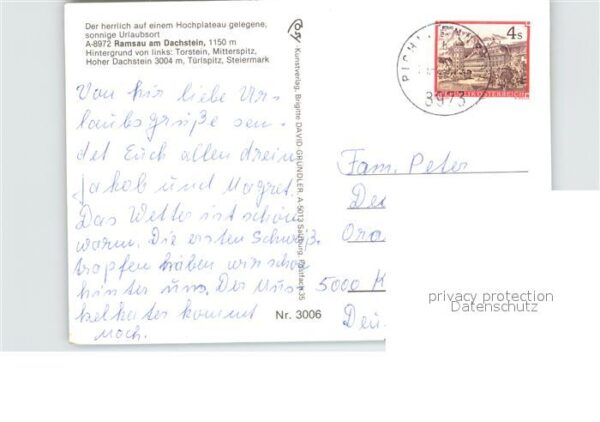 Der herrlich auf einem Hochplateau gelegene,
sonnige Urlaubsort
A-8972 Ramsau am Dachstein, 1150 m
Hintergrund von links: Torstein, Mitterspitz,
Hoher Dachstein 3004 m, Türlspitz, Steiermark
Von hir liebe Ur-
laubsgrüße sen-
det Euch allen dreien
Jakob und Magret.
Das Wetter ist schön
warm. Die ersten Schweiß-
tropfen haben wir schon
hinter uns. Der Mus-
kelkater kommt
noch.
Cosy-Kunstverlag, Brigitte DAVID-GRÜNDLER, A-5013 Salzburg, Postfach 35
Nr. 3006
4 S
REPUBLIK ÖSTERREICH
8973
Fam. Peter
De
Ora
5000 K
Deu
privacy protection
Datenschutz